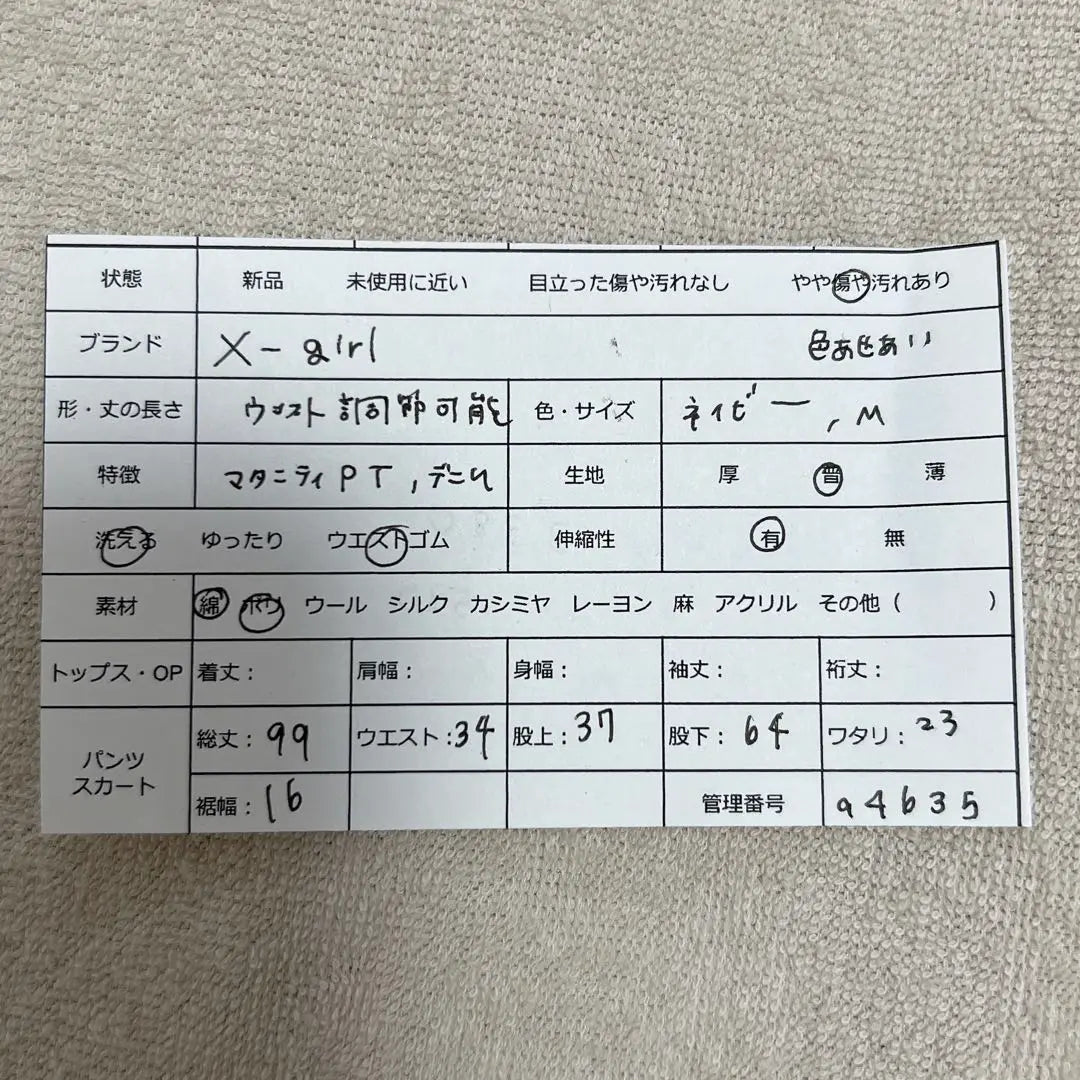 状態 新品 未使用に近い 目立った傷や汚れなし やや傷や汚れあり
ブランド X-girl 色あせあり
形・丈の長さ ウエスト調節可能 色・サイズ ネイビー, M
特徴 マタニティPT, デニム 生地 厚 普 薄
洗える ゆったり ウエストゴム 伸縮性 有 無
素材 綿 ポリ ウール シルク カシミヤ レーヨン 麻 アクリル その他( )
トップス・OP 着丈: 肩幅: 身幅: 袖丈: 裄丈:
パンツ スカート 総丈: 99 ウエスト: 34 股上: 37 股下: 64 ワタリ: 23
裾幅: 16 管理番号 a4635